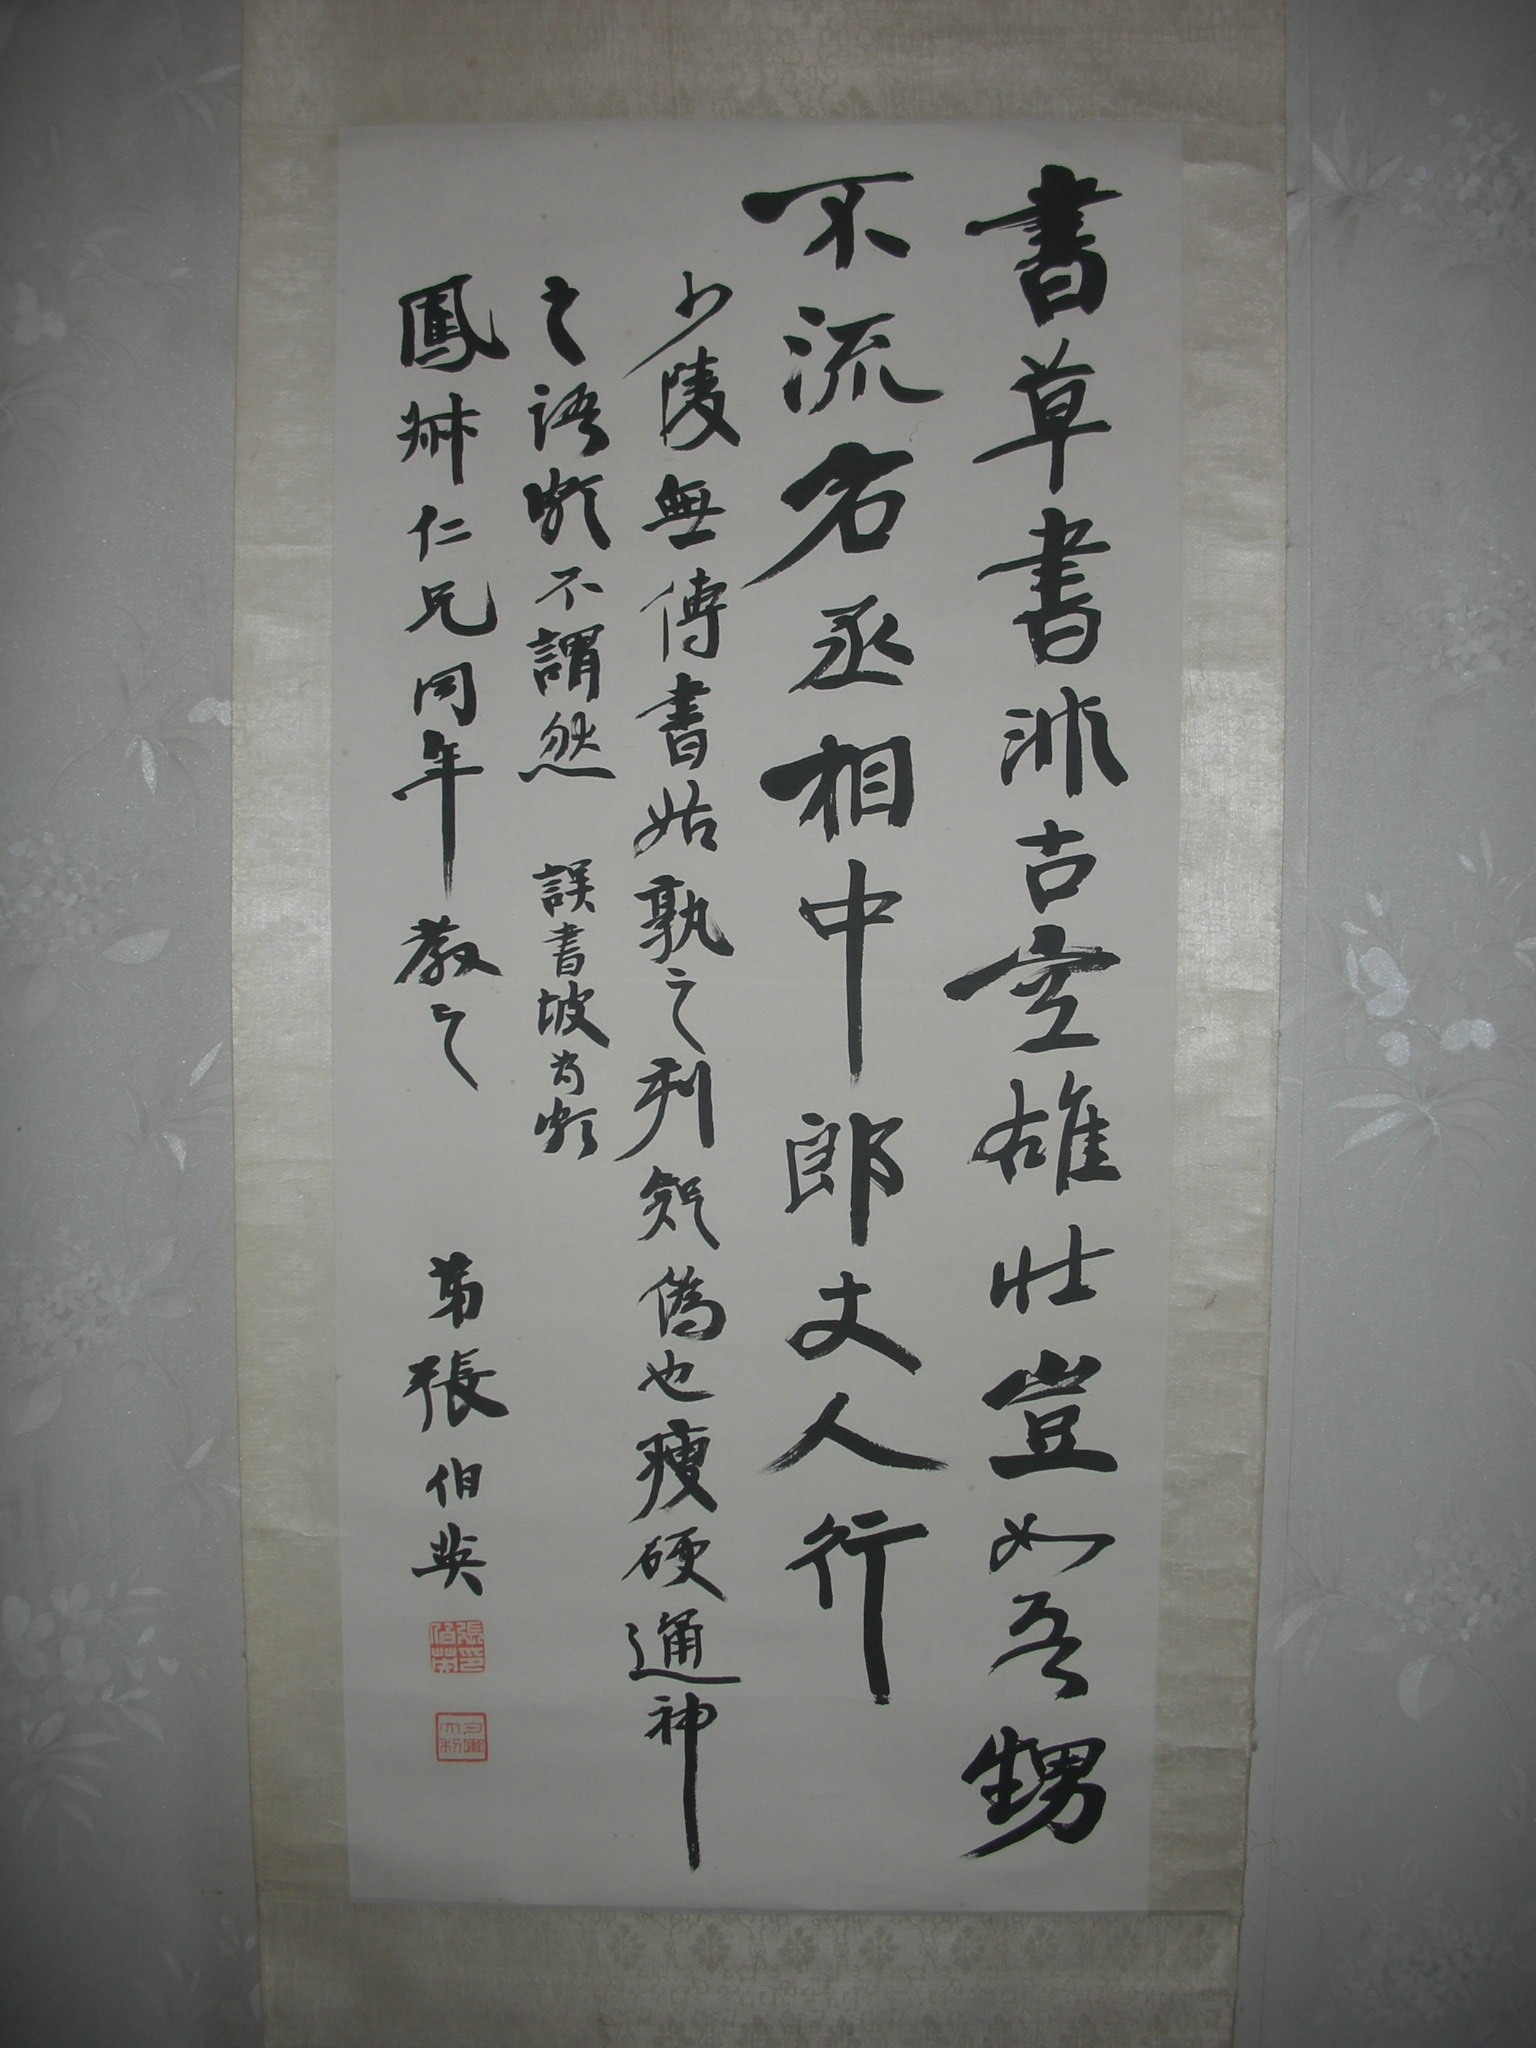 書草書非古空雄壯豈如吾甥
不流宕丞相中郎丈人行
少陵無傳書姑孰之刊矧偽也瘦硬通神
之語頗不謂然 誤書坡為頗
鳳仁兄同年教之 弟張伯英
張印伯英